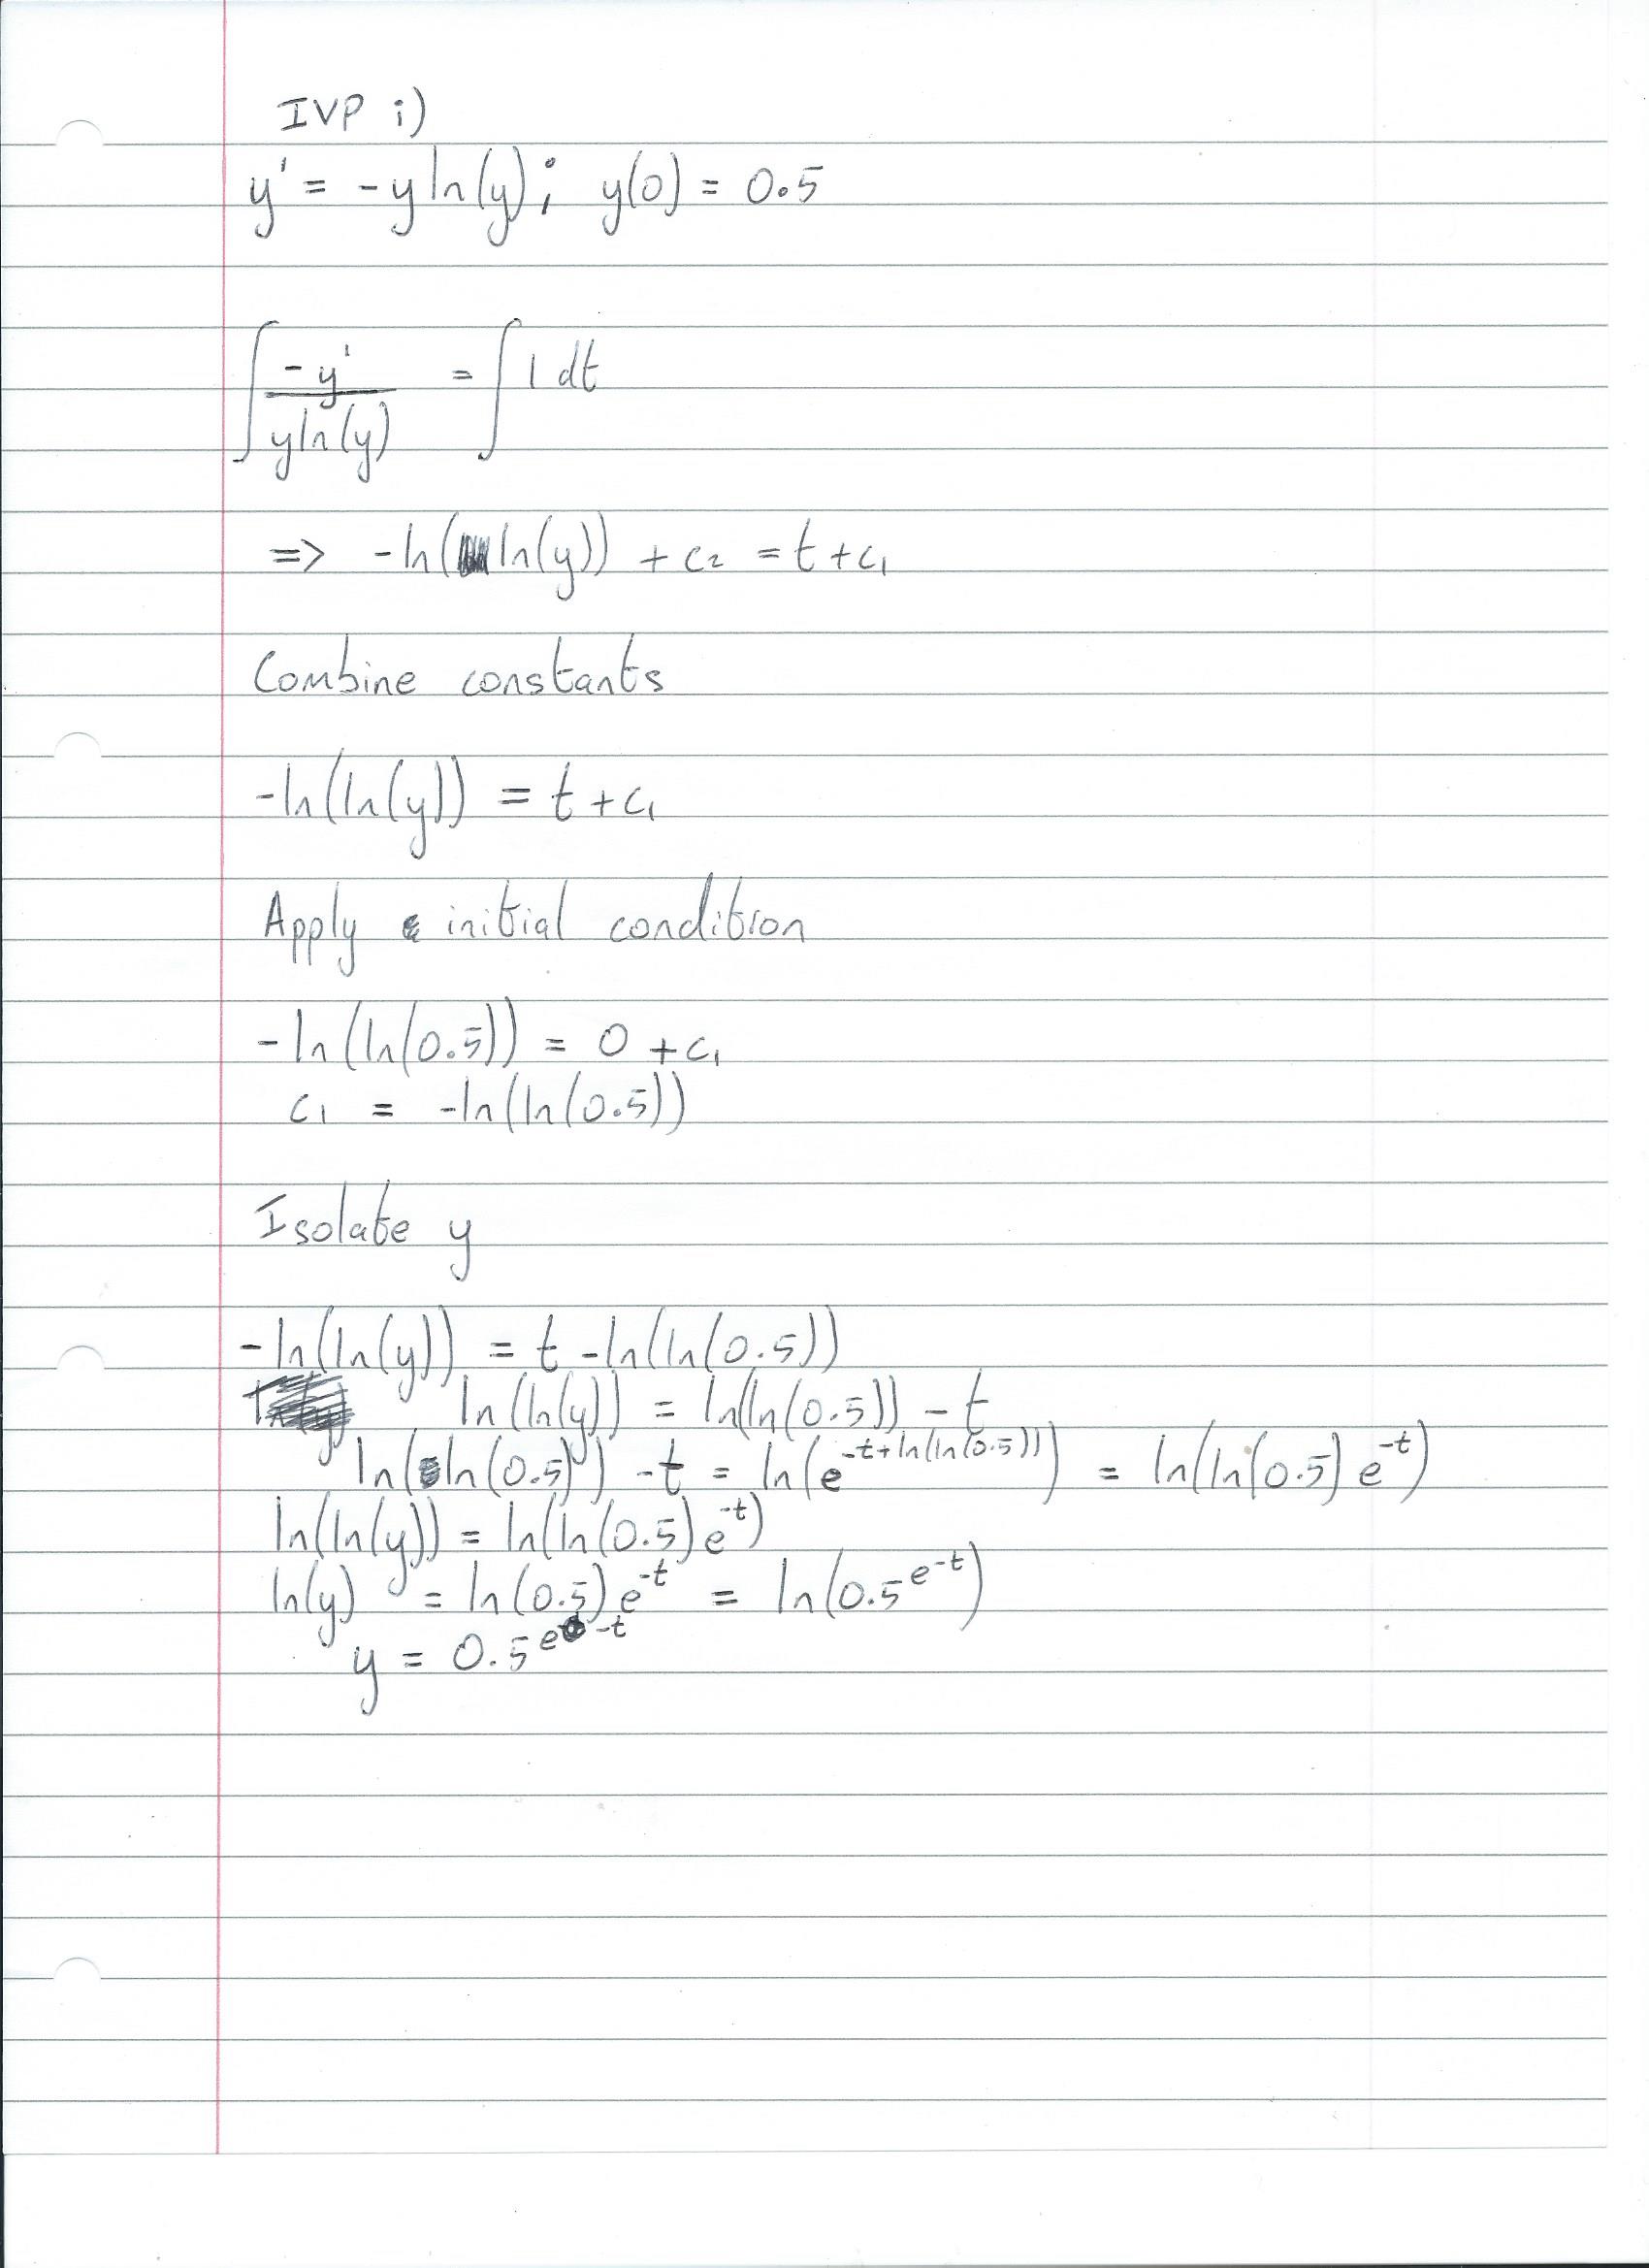 IVP i)
y' = -y ln(y); y(0) = 0.5
∫ -y' / y ln(y) = ∫ 1 dt
=> -ln(ln(y)) + c₂ = t + c₁
Combine constants
-ln(ln(y)) = t + c₁
Apply initial condition
-ln(ln(0.5)) = 0 + c₁
c₁ = -ln(ln(0.5))
Isolate y
-ln(ln(y)) = t - ln(ln(0.5))
ln(ln(y)) = ln(ln(0.5)) - t
ln(ln(0.5)) - t = ln(e^(-t+ln(ln(0.5)))) = ln(ln(0.5) e^(-t))
ln(ln(y)) = ln(ln(0.5) e^(-t))
ln(y) = ln(0.5) e^(-t) = ln(0.5^(e^(-t)))
y = 0.5^(e^(-t))